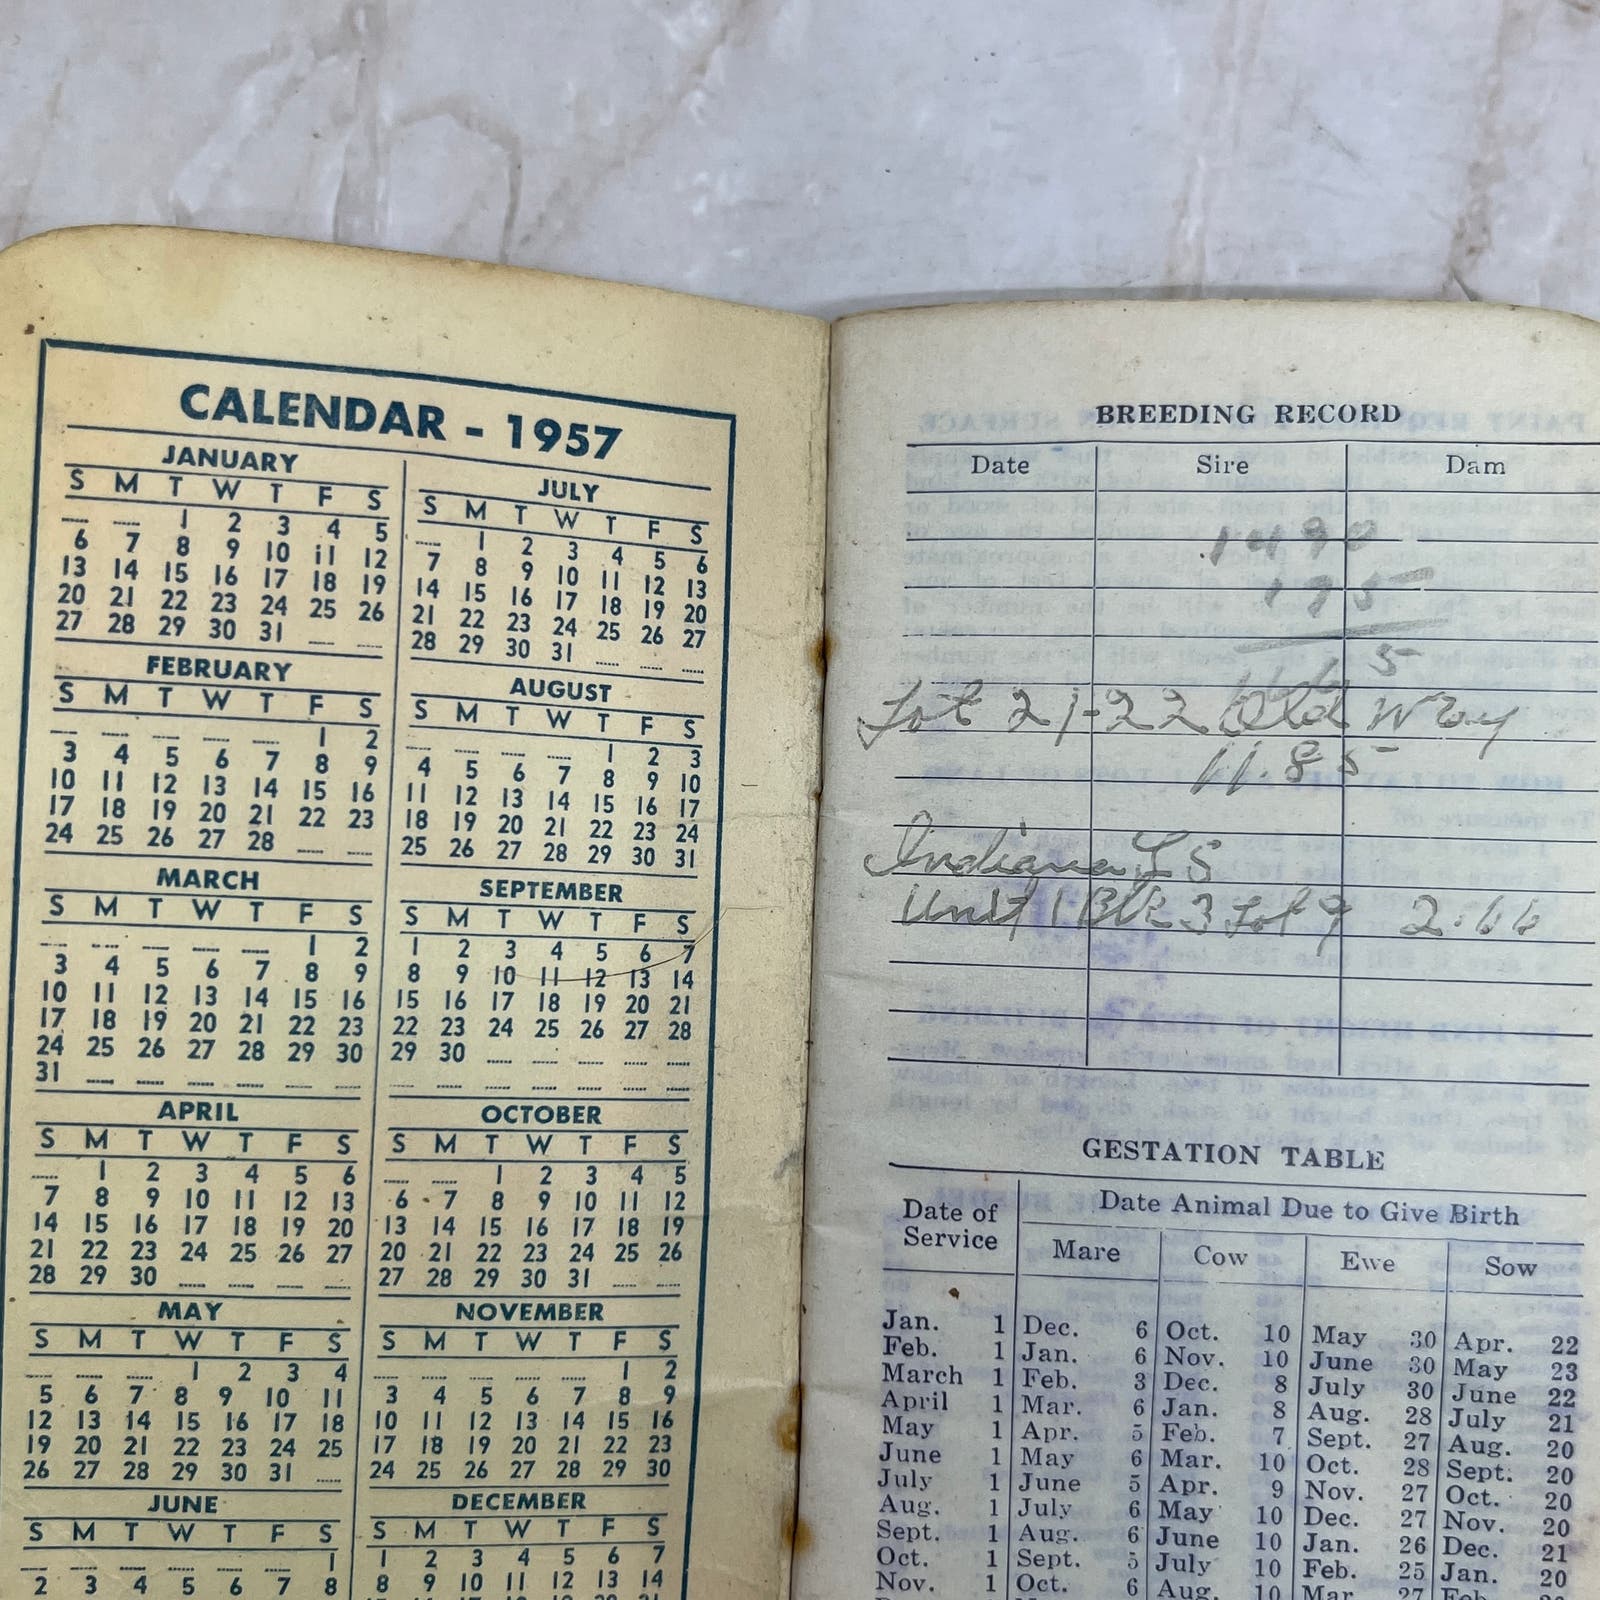 CALENDAR - 1957
JANUARY
S M T W T F S
1 2 3 4 5
6 7 8 9 10 11 12
13 14 15 16 17 18 19
20 21 22 23 24 25 26
27 28 29 30 31
FEBRUARY
S M T W T F S
1 2
3 4 5 6 7 8 9
10 11 12 13 14 15 16
17 18 19 20 21 22 23
24 25 26 27 28
MARCH
S M T W T F S
1 2
3 4 5 6 7 8 9
10 11 12 13 14 15 16
17 18 19 20 21 22 23
24 25 26 27 28 29 30
31
APRIL
S M T W T F S
1 2 3 4 5 6
7 8 9 10 11 12 13
14 15 16 17 18 19 20
21 22 23 24 25 26 27
28 29 30
MAY
S M T W T F S
1 2 3 4
5 6 7 8 9 10 11
12 13 14 15 16 17 18
19 20 21 22 23 24 25
26 27 28 29 30 31
JUNE
S M T W T F S
1
2 3 4 5 6 7 8
JULY
S M T W T F S
1 2 3 4 5 6
7 8 9 10 11 12 13
14 15 16 17 18 19 20
21 22 23 24 25 26 27
28 29 30 31
AUGUST
S M T W T F S
1 2 3
4 5 6 7 8 9 10
11 12 13 14 15 16 17
18 19 20 21 22 23 24
25 26 27 28 29 30 31
SEPTEMBER
S M T W T F S
1 2 3 4 5 6 7
8 9 10 11 12 13 14
15 16 17 18 19 20 21
22 23 24 25 26 27 28
29 30
OCTOBER
S M T W T F S
1 2 3 4 5
6 7 8 9 10 11 12
13 14 15 16 17 18 19
20 21 22 23 24 25 26
27 28 29 30 31
NOVEMBER
S M T W T F S
1 2
3 4 5 6 7 8 9
10 11 12 13 14 15 16
17 18 19 20 21 22 23
24 25 26 27 28 29 30
DECEMBER
S M T W T F S
1 2 3 4 5 6 7
8 9 10 11 12 13 14
BREEDING RECORD
Date Sire Dam
1490
175
Lot 21-22 Old Way
11.85
Indiana LS
Unit 1 Blk 3 Lot 9 2.66
GESTATION TABLE
Date of Service
Date Animal Due to Give Birth
Mare Cow Ewe Sow
Jan. 1 Dec. 6 Oct. 10 May 30 Apr. 22
Feb. 1 Jan. 6 Nov. 10 June 30 May 23
March 1 Feb. 3 Dec. 8 July 30 June 22
April 1 Mar. 6 Jan. 8 Aug. 28 July 21
May 1 Apr. 5 Feb. 7 Sept. 27 Aug. 20
June 1 May 6 Mar. 10 Oct. 28 Sept. 20
July 1 June 5 Apr. 9 Nov. 27 Oct. 20
Aug. 1 July 6 May 10 Dec. 27 Nov. 20
Sept. 1 Aug. 6 June 10 Jan. 26 Dec. 21
Oct. 1 Sept. 5 July 10 Feb. 25 Jan. 20
Nov. 1 Oct. 6 Aug. 10 Mar. 27